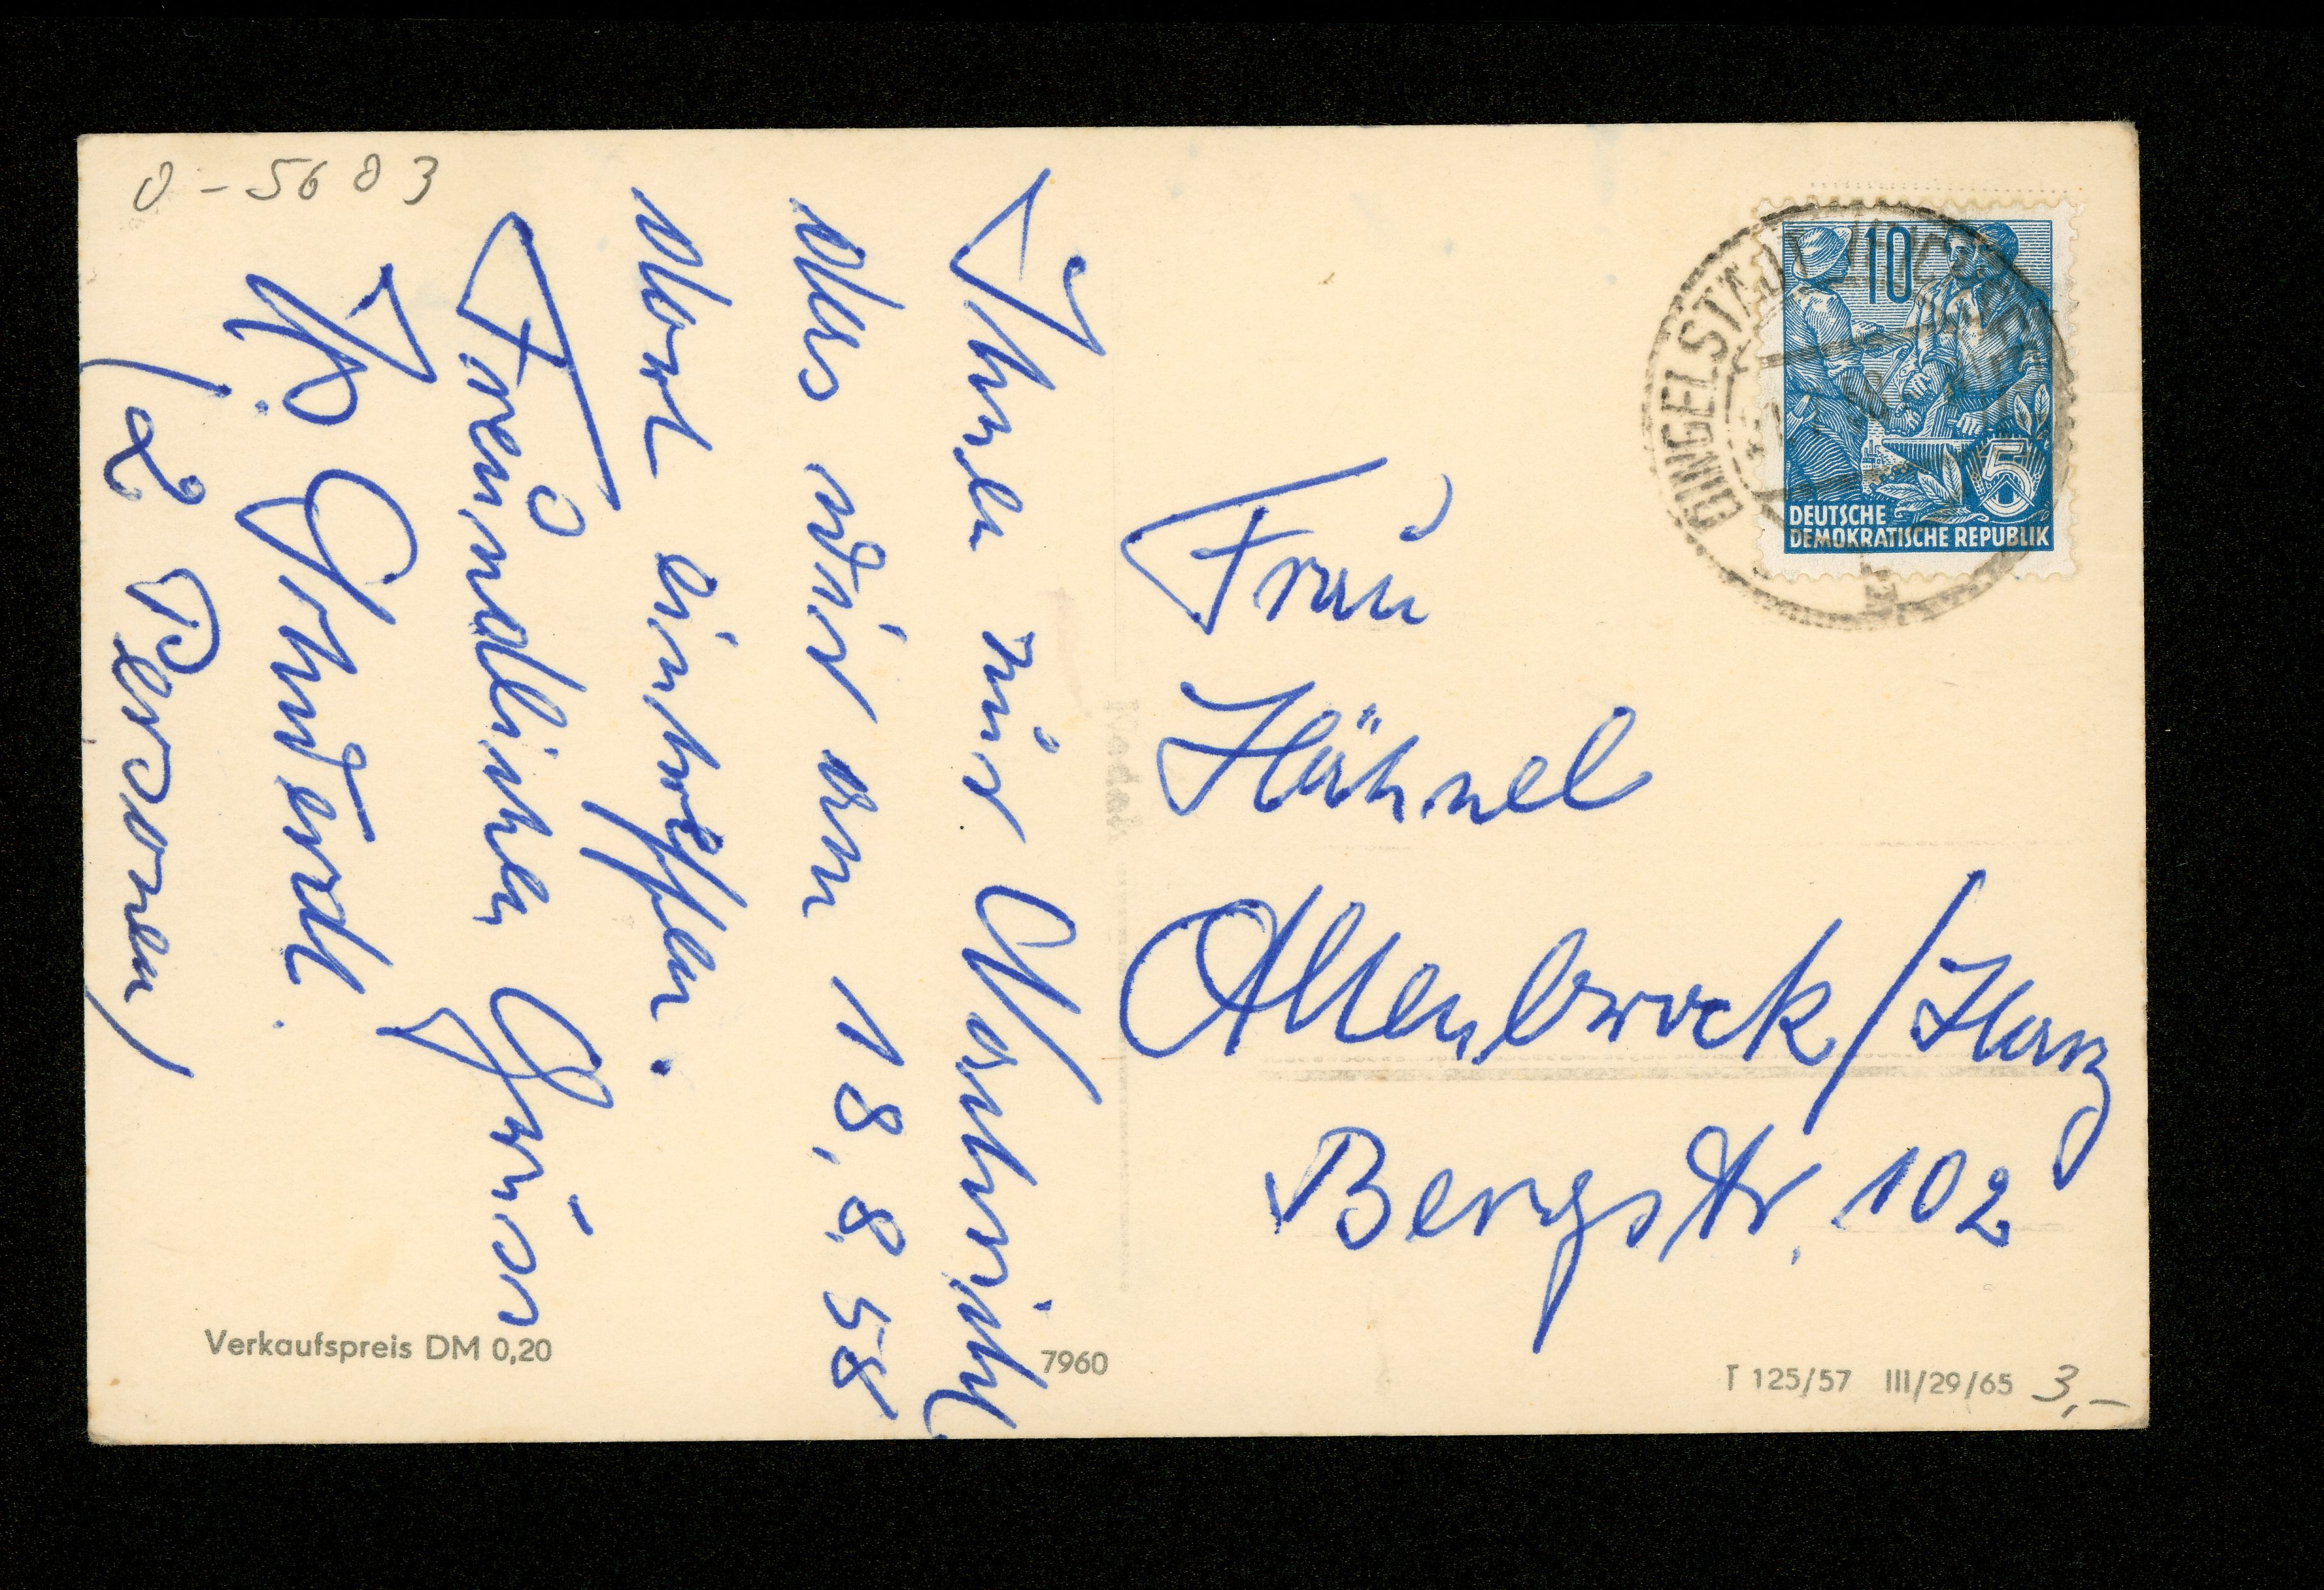 0-5683
Ihnen zur Nachricht
das wir am 18,8.58
dort eintreffen.
Freundlichen Gruss
(2 Personen)
Verkaufspreis DM 0,20
7960
10
5
DEUTSCHE
DEMOKRATISCHE REPUBLIK
DINGELSTÄDT
Frau
Hähnel
Altenbrock/Harz
Bergstr. 102
T 125/57 III/29/65
3,-